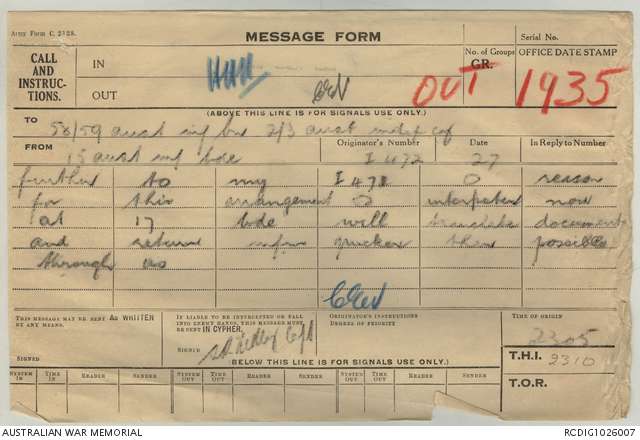 Army Form C. 2128.
MESSAGE FORM
Serial No.
CALL AND INSTRUCTIONS.
IN
OUT
No. of Groups
GR.
OFFICE DATE STAMP
OUT 1935
(ABOVE THIS LINE IS FOR SIGNALS USE ONLY.)
TO 58/59 aust inf bn 2/3 aust indep coy
FROM Originator's Number Date In Reply to Number
15 aust inf bde I 472 27
further to my I 473 O reason
for this arrangement O interpeter now
at 17 bde will translate document
and return info quicker then possible
through us
THIS MESSAGE MAY BE SENT AS WRITTEN BY ANY MEANS.
SIGNED
IF LIABLE TO BE INTERCEPTED OR FALL INTO ENEMY HANDS, THIS MESSAGE MUST BE SENT IN CYPHER.
SIGNED
ORIGINATOR'S INSTRUCTIONS
DEGREE OF PRIORITY
TIME OF ORIGIN
2305
(BELOW THIS LINE IS FOR SIGNALS USE ONLY.)
T.H.I. 2310
SYSTEM IN TIME IN READER SENDER SYSTEM OUT TIME OUT READER SENDER SYSTEM OUT TIME OUT READER SENDER
T.O.R.
AUSTRALIAN WAR MEMORIAL
RCDIG1026007